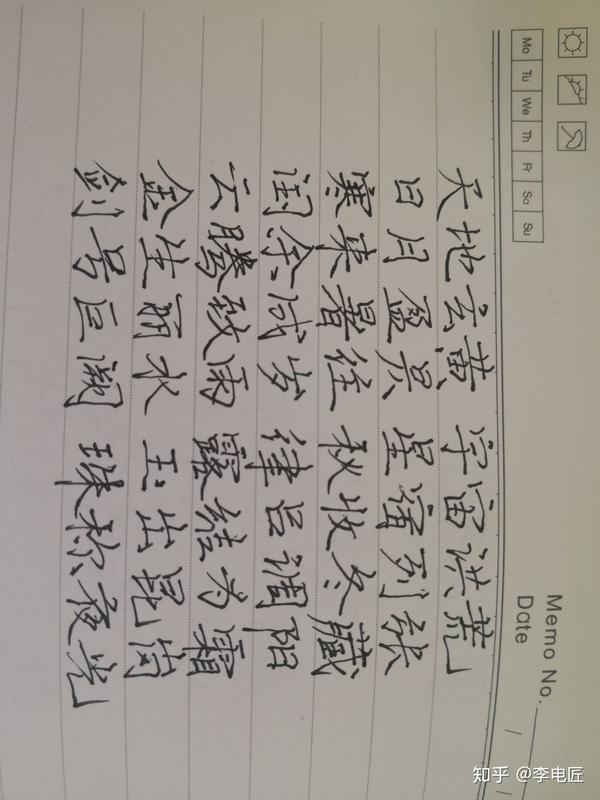 Mo Tu We Th Fr Sa Su
Memo No.
Date / /
天地玄黄 宇宙洪荒
日月盈昃 星宿列张
寒来暑往 秋收冬藏
闰余成岁 律吕调阳
云腾致雨 露结为霜
金生丽水 玉出昆岗
剑号巨阙 珠称夜光
知乎 @李电匠